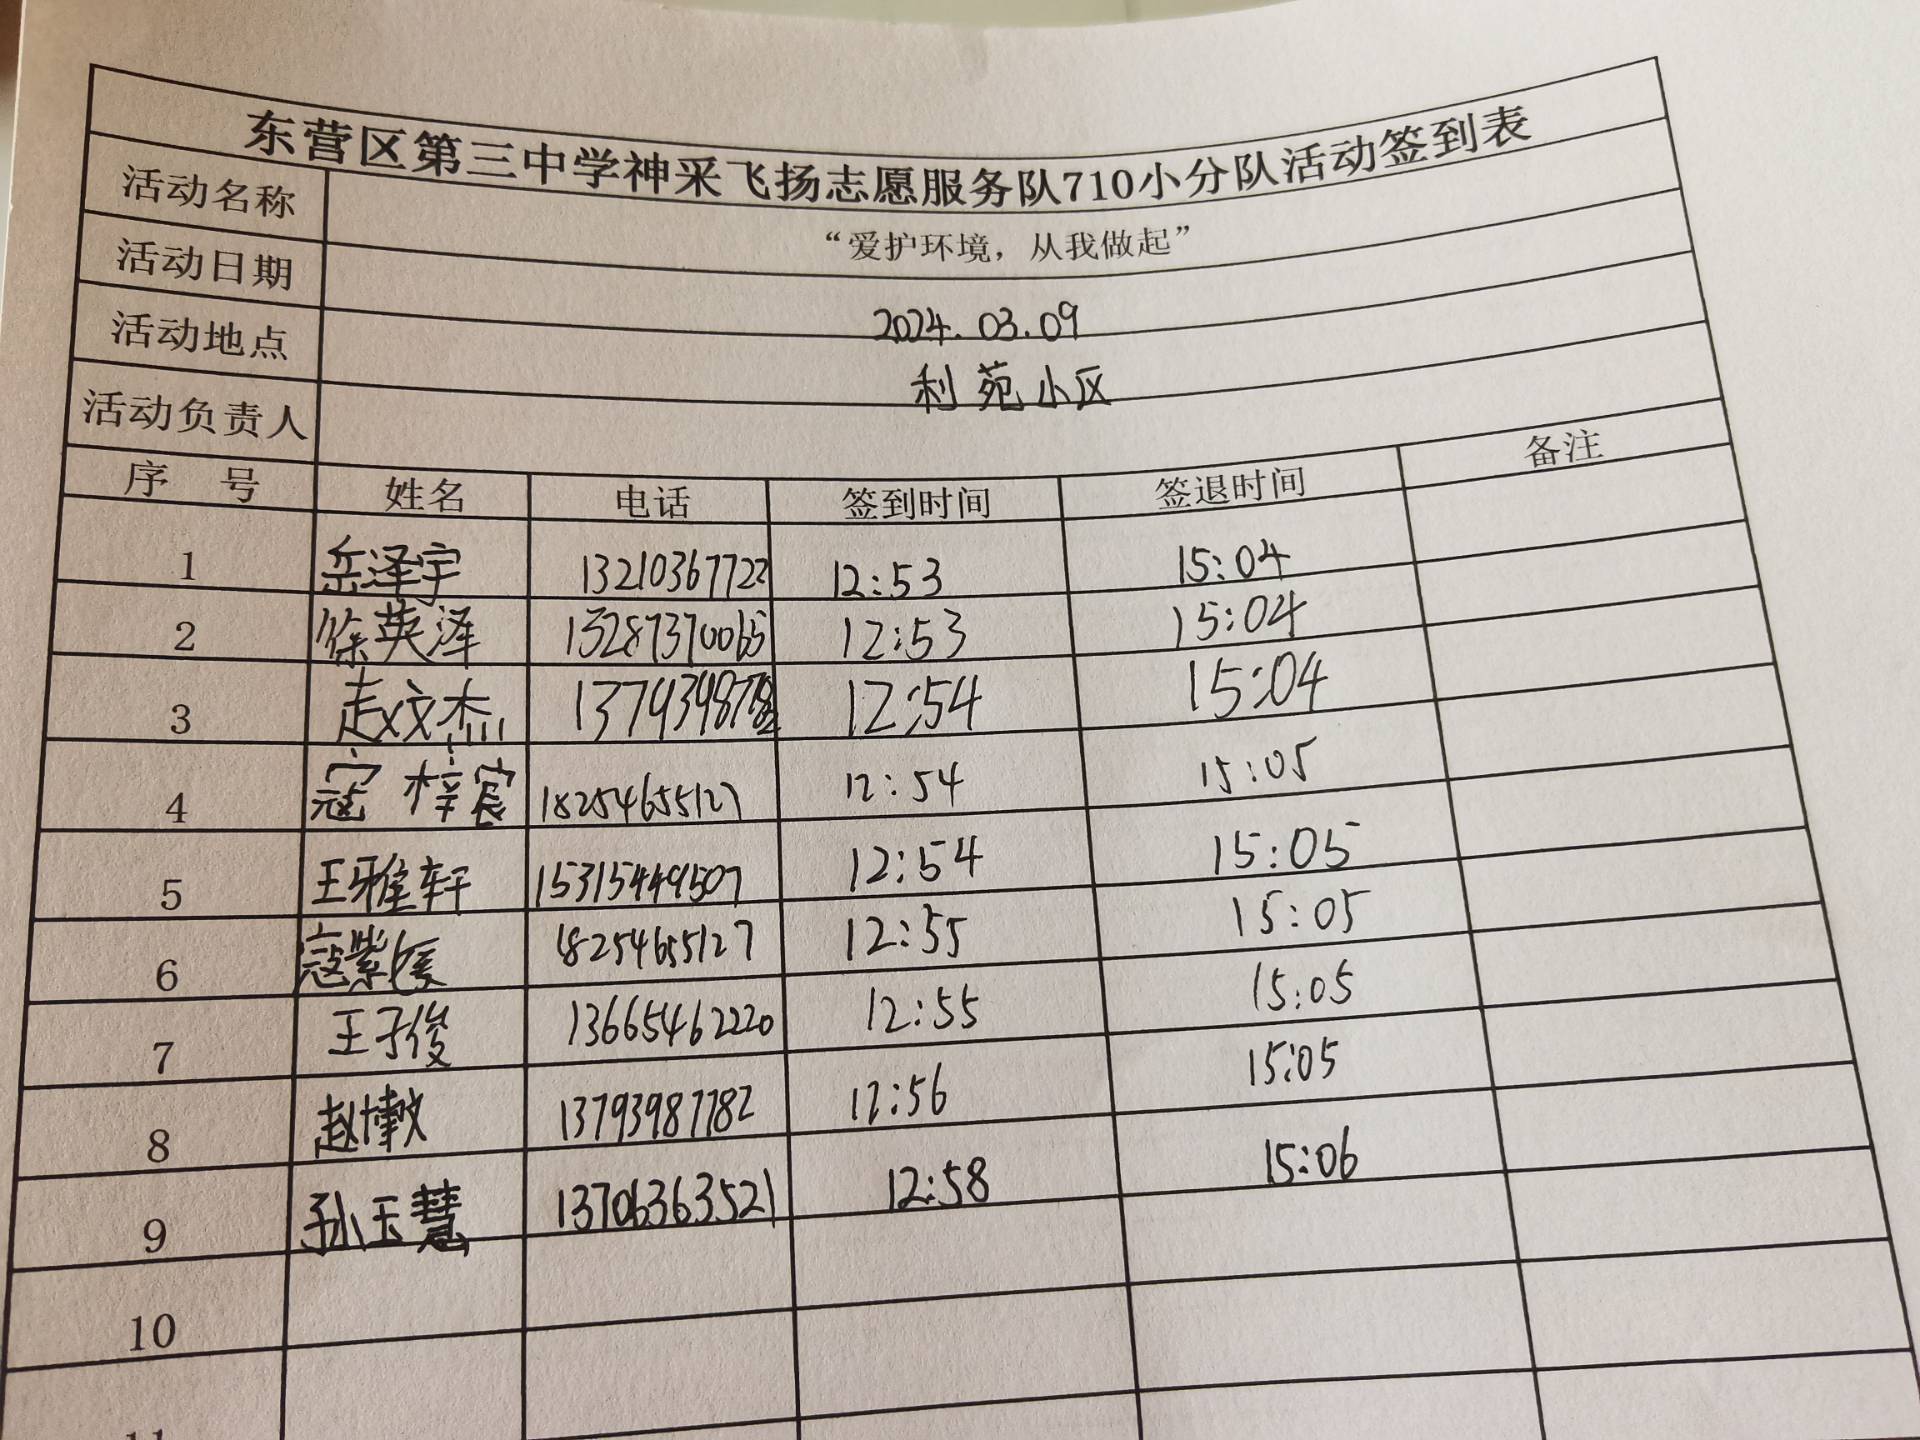 东营区第三中学神采飞扬志愿服务队710小分队活动签到表
活动名称 “爱护环境，从我做起”
活动日期 2024.03.09
活动地点 利苑小区
活动负责人
序 号 姓名 电话 签到时间 签退时间 备注
1 岳泽宇 13210367722 12:53 15:04
2 徐英泽 13287370065 12:53 15:04
3 赵文杰 12:54 15:04
4 寇梓宸 18254655127 12:54 15:05
5 王雅轩 15315449507 12:54 15:05
6 寇紫媛 18254655127 12:55 15:05
7 王子俊 13665462220 12:55 15:05
8 赵博文 13793987782 12:56 15:05
9 孙玉慧 13706363521 12:58 15:06
10